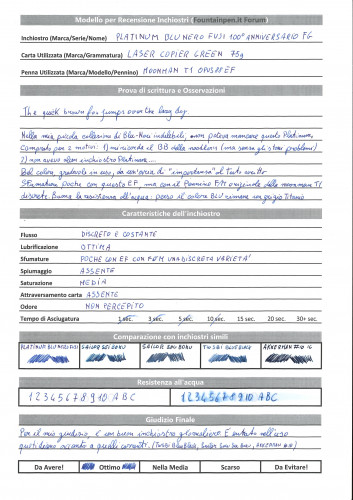 Modello per Recensione Inchiostri (Fountainpen.it Forum)
Inchiostro (Marca/Serie/Nome) PLATINUM BLU NERO FUJI 100° ANNIVERSARIO FG
Carta Utilizzata (Marca/Grammatura) LASER COPIER GREEN 75g
Penna Utilizzata (Marca/Modello/Pennino) MOONMAN T1 EF
Prova di scrittura e Osservazioni
The quick brown fox jumps over the lazy dog
Nella mia piccola collezione di Blu-Neri indelebili, non poteva mancare questo Platinum,
Comprato per 2 motivi: 1) il BB della
2) non avevo alcun inchiostro Platinum...
Bel colore, gradevole in uso, da "importanza" al testo scritto
Sfumature poche con questo EF, ma con il Pennino F/M originale della moonman T1
discrete. Buona la resistenza all'acqua: perso il colore BLU rimane un grigio
Caratteristiche dell'inchiostro
Flusso DISCRETO E COSTANTE
Lubrificazione OTTIMA
Sfumature POCHE CON EF CON F/M UNA DISCRETA VARIETA'
Spiumaggio ASSENTE
Saturazione MEDIA
Attraversamento carta ASSENTE
Odore NON PERCEPITO
Tempo di Asciugatura 1 sec 3 sec. 5 sec 10 sec 15 sec 20 sec. 30+ sec.
Comparazione con inchiostri simili
PLATINUM BLU NERO FUJI SAILOR SEI BOKU SAILOR SOU BOKU TWSBI BLUE BLACK AKKERMAN #10
Resistenza all'acqua
1 2 3 4 5 6 7 8 9 10 ABC 1 2 3 4 5 6 7 8 9 10 ABC
Giudizio Finale
Per il mio giudizio, è un buon inchiostro giornaliero. È entrato nell'uso
quotidiano accanto a quelli (Twsbi Blue Black, Sailor Sou Bo Boku, AKKERMAN #10)
Da Avere! Ottimo Nella Media Scarso Da Evitare!